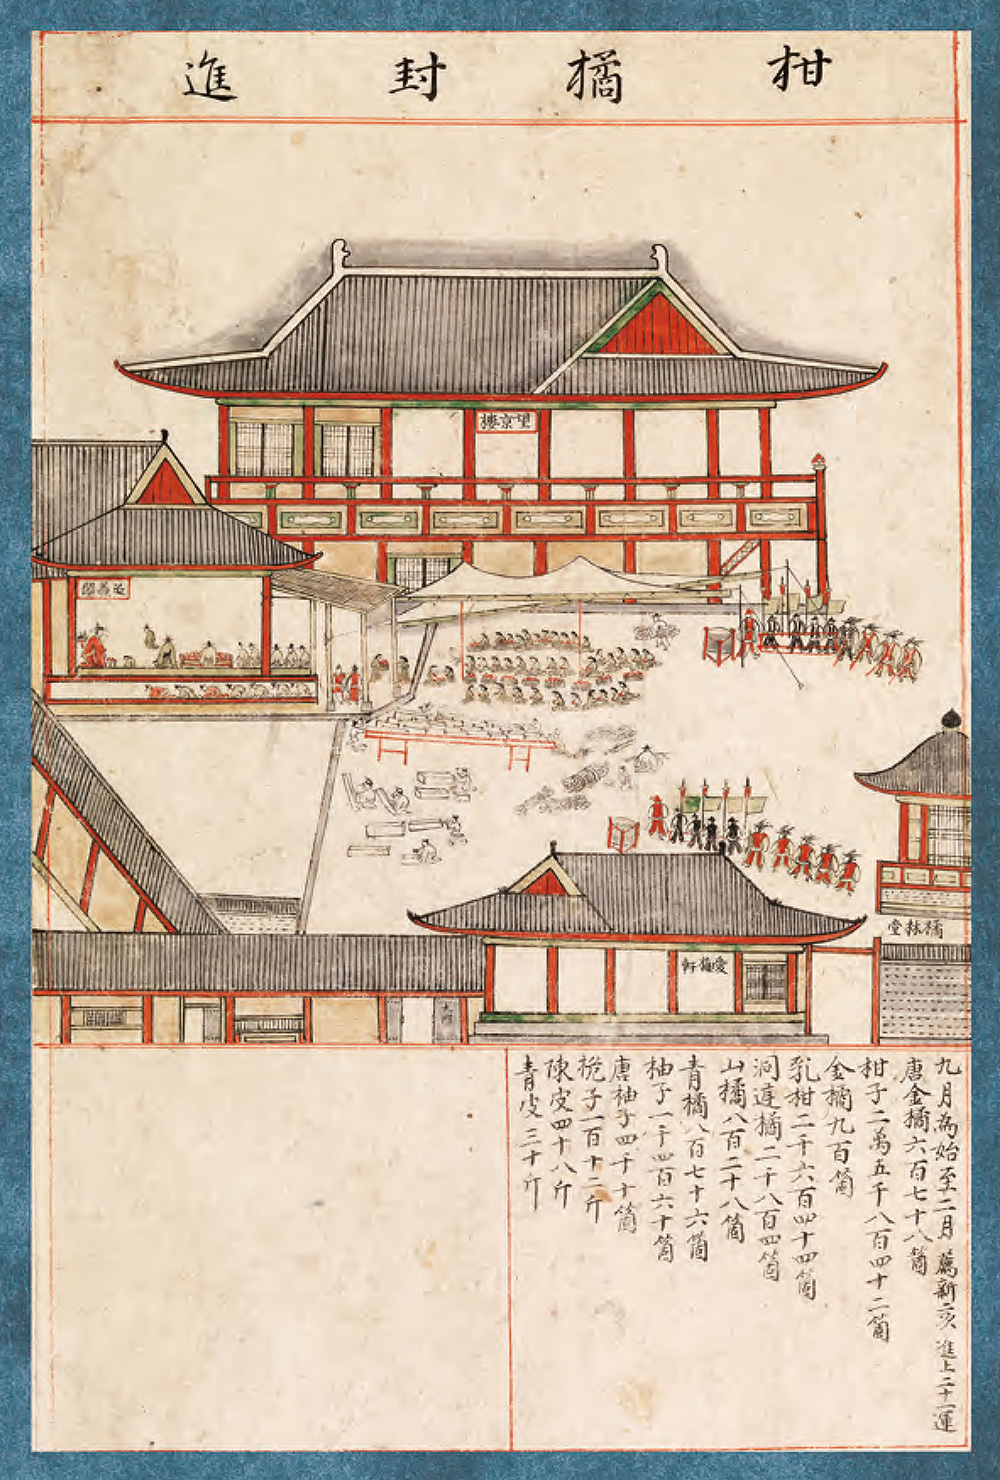 柑橘封進
望京樓
愛梅軒
橘林堂
九月為始至二月 薦新二次 進上二十一運
唐金橘六百七十八箇
柑子二萬五千八百四十二箇
金橘九百箇
乳柑二千六百四十四箇
洞庭橘二千八百四箇
山橘八百二十八箇
青橘八百七十六箇
柚子一千四百六十箇
唐柚子四千十箇
梔子一百十二斤
陳皮四十八斤
青皮三十斤